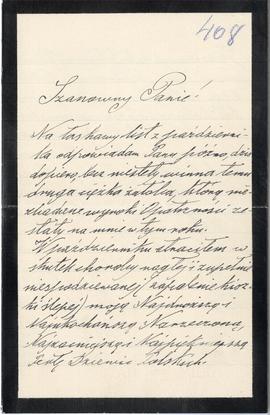 408
Szanowny Panie!
Na łaskawy list z październi-
ka odpowiadam Panu późno, dziś
dopiero, bez niestety winna temu
druga ciężka żałoba, którą nie-
zbadane wyroki Opatrzności ze-
słały na mnie w tym roku.
W październiku straciłem w
skutek choroby nagłej i zupełnie
niespodziewanej (zapalenie kisz-
ki ślepej) moją Najdroższą i
Najukochańszą Narzeczoną,
Najzacniejszą i Najpiękniejszą
Perłę Dziewic Polskich.